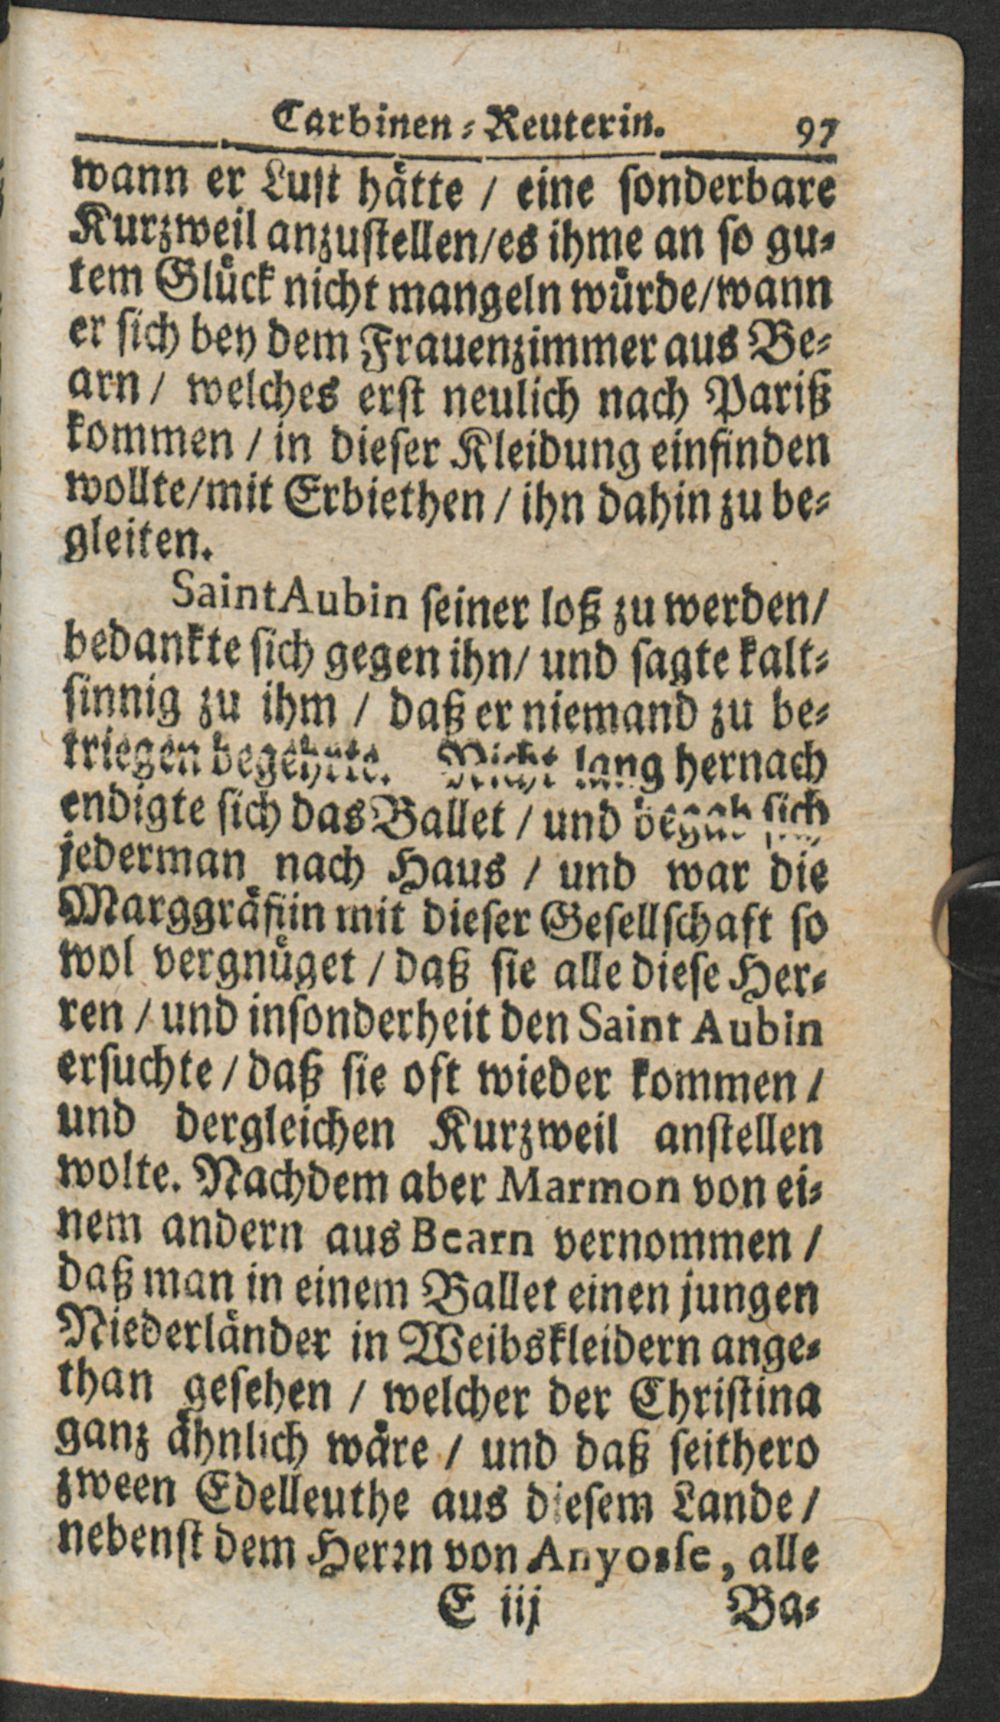 Carbinen-Reuterin. 97
wann er Lust hätte / eine sonderbare
Kurzweil anzustellen/es ihme an so gu-
tem Glück nicht mangeln würde/wann
er sich bey dem Frauenzimmer aus Be-
arn / welches erst neulich nach Pariß
kommen / in dieser Kleidung einfinden
wollte/mit Erbiethen / ihn dahin zu be-
gleiten.
Saint Aubin seiner loß zu werden/
bedankte sich gegen ihn/ und sagte kalt-
sinnig zu ihm / daß er niemand zu be-
kriegen begehrte. Nicht lang hernach
endigte sich das Ballet / und begab sich
jederman nach Haus / und war die
Marggräfiin mit dieser Gesellschaft so
wol vergnüget / daß sie alle diese Her-
ren / und insonderheit den Saint Aubin
ersuchte / daß sie oft wieder kommen /
und dergleichen Kurzweil anstellen
wolte. Nachdem aber Marmon von ei-
nem andern aus Bearn vernommen /
daß man in einem Ballet einen jungen
Niederländer in Weibskleidern ange-
than gesehen / welcher der Christina
ganz ähnlich wäre / und daß seithero
zween Edelleuthe aus diesem Lande /
nebenst dem Herrn von Anyosse, alle
E iij Ba-